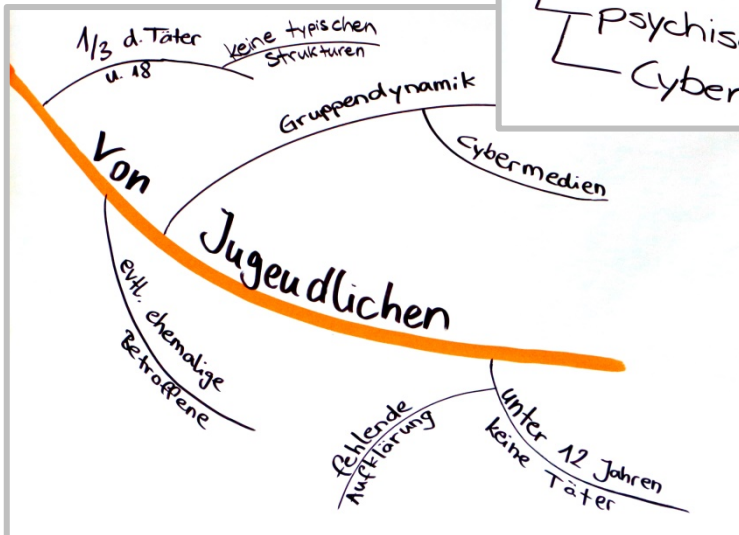 psychis
Cyber
1/3 d. Täter
u. 18
keine typischen
Strukturen
Gruppendynamik
Cybermedien
Von
Jugendlichen
evtl. ehemalige
Betroffene
fehlende
Aufklärung
unter 12 Jahren
keine Täter